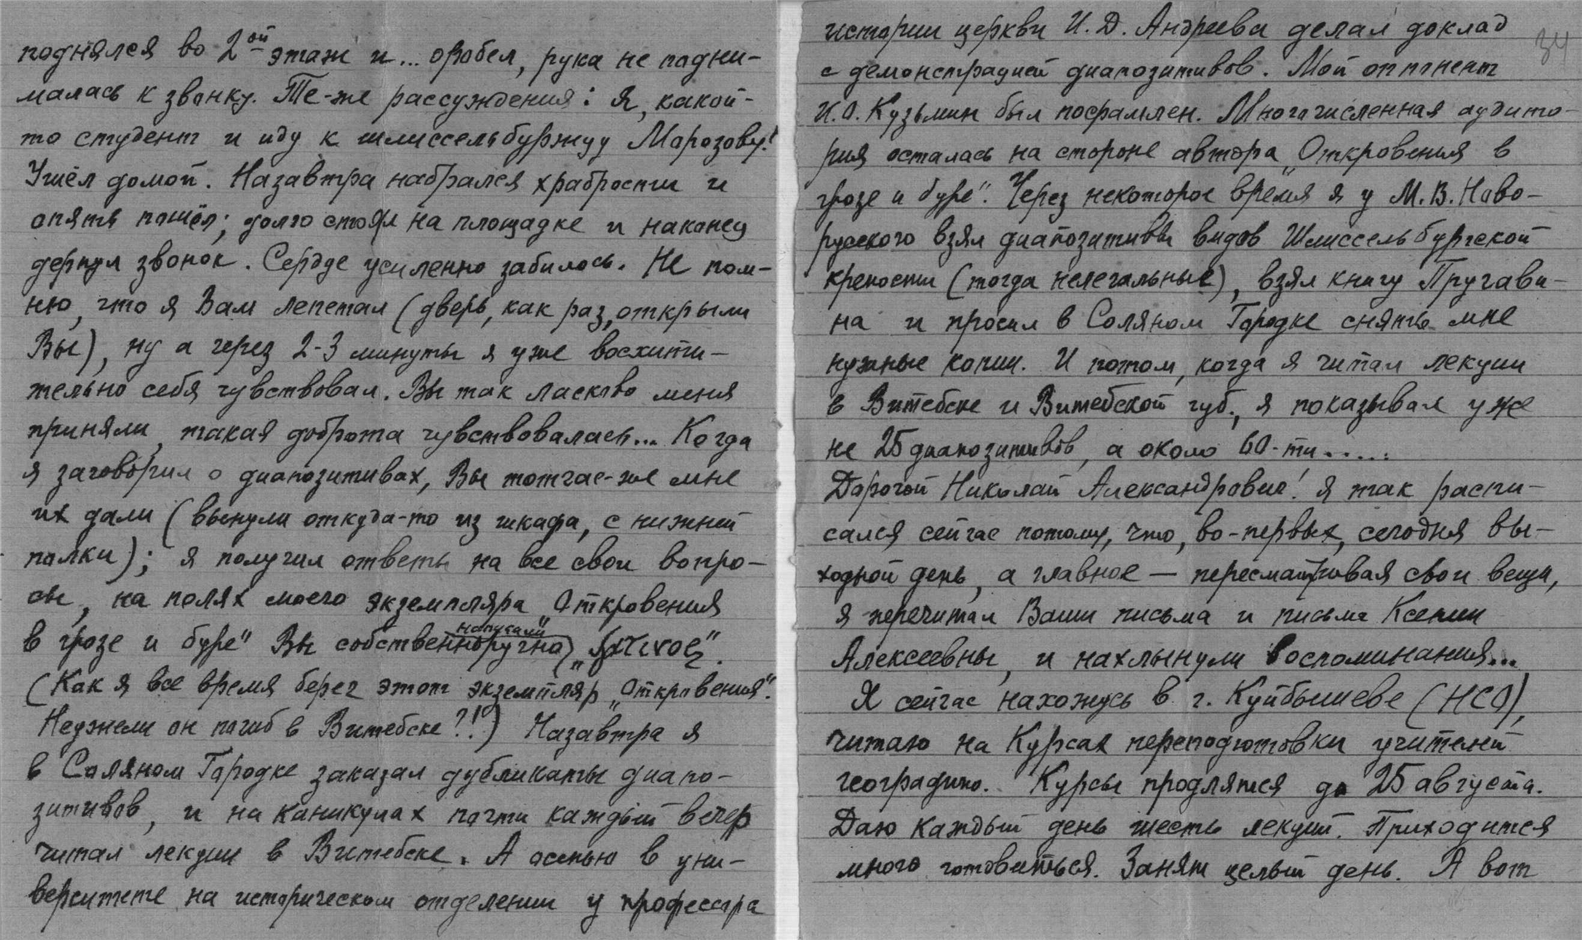 поднялся во 2ой этаж и... оробел, рука не подни-
малась к звонку. Те-же рассуждения: я, какой-
то студент и иду к шлиссельбуржцу Морозову!
Ушёл домой. Назавтра набрался храбрости и
опять пошёл; долго стоял на площадке и наконец
дернул звонок. Сердце усиленно забилось. Не пом-
ню, что я Вам лепетал (дверь, как раз, открыли
Вы), ну а через 2-3 минуты я уже восхити-
тельно себя чувствовал. Вы так ласково меня
приняли, такая доброта чувствовалась... Когда
я заговорил о диапозитивах, Вы тотчас-же мне
их дали (вынули откуда-то из шкафа, с нижней
полки); я получил ответы на все свои вопро-
сы, на полях моего экземпляра „Откровения
в грозе и буре" Вы собственноручно написали
(Как я все время берег этот экземпляр „Откровения".
Неужели он погиб в Витебске?!) Назавтра я
в Соляном Городке заказал дубликаты диапо-
зитивов, и на каникулах почти каждый вечер
читал лекции в Витебске. А осенью в уни-
верситете на историческом отделении у профессора
34
истории церкви И. Д. Андреева делал доклад
с демонстрацией диапозитивов. Мой оппонент
И. А. Кузьмин был посрамлен. Многочисленная аудито-
рия осталась на стороне автора „Откровения в
грозе и буре". Через некоторое время я у М. В. Ново-
русского взял диапозитивы видов Шлиссельбургской
крепости (тогда нелегальные), взял книгу Пругави-
на и просил в Соляном Городке снять мне
нужные копии. И потом, когда я читал лекции
в Витебске и Витебской губ., я показывал уже
не 25 диапозитивов, а около 60-ти.....
Дорогой Николай Александрович! Я так распи-
сался сейчас потому, что, во-первых, сегодня вы-
ходной день, а главное — пересматривая свои вещи,
я перечитал Ваши письма и письма Ксении
Алексеевны, и нахлынули воспоминания...
Я сейчас нахожусь в г. Куйбышеве (НСО),
читаю на Курсах переподготовки учителей
географию. Курсы продлятся до 25 августа.
Даю каждый день шесть лекций. Приходится
много готовиться. Занят целый день. А вот